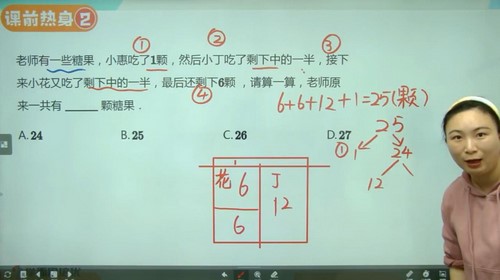 课前热身2
① ② ③
老师有一些糖果，小惠吃了1颗，然后小丁吃了剩下中的一半，接下
来小花又吃了剩下中的一半，最后还剩下6颗，请算一算，老师原
④
来一共有 ______ 颗糖果．
6+6+12+1=25(颗)
A. 24 B. 25 C. 26 D. 27
25
① 1 24
12
花 6 丁
12
6